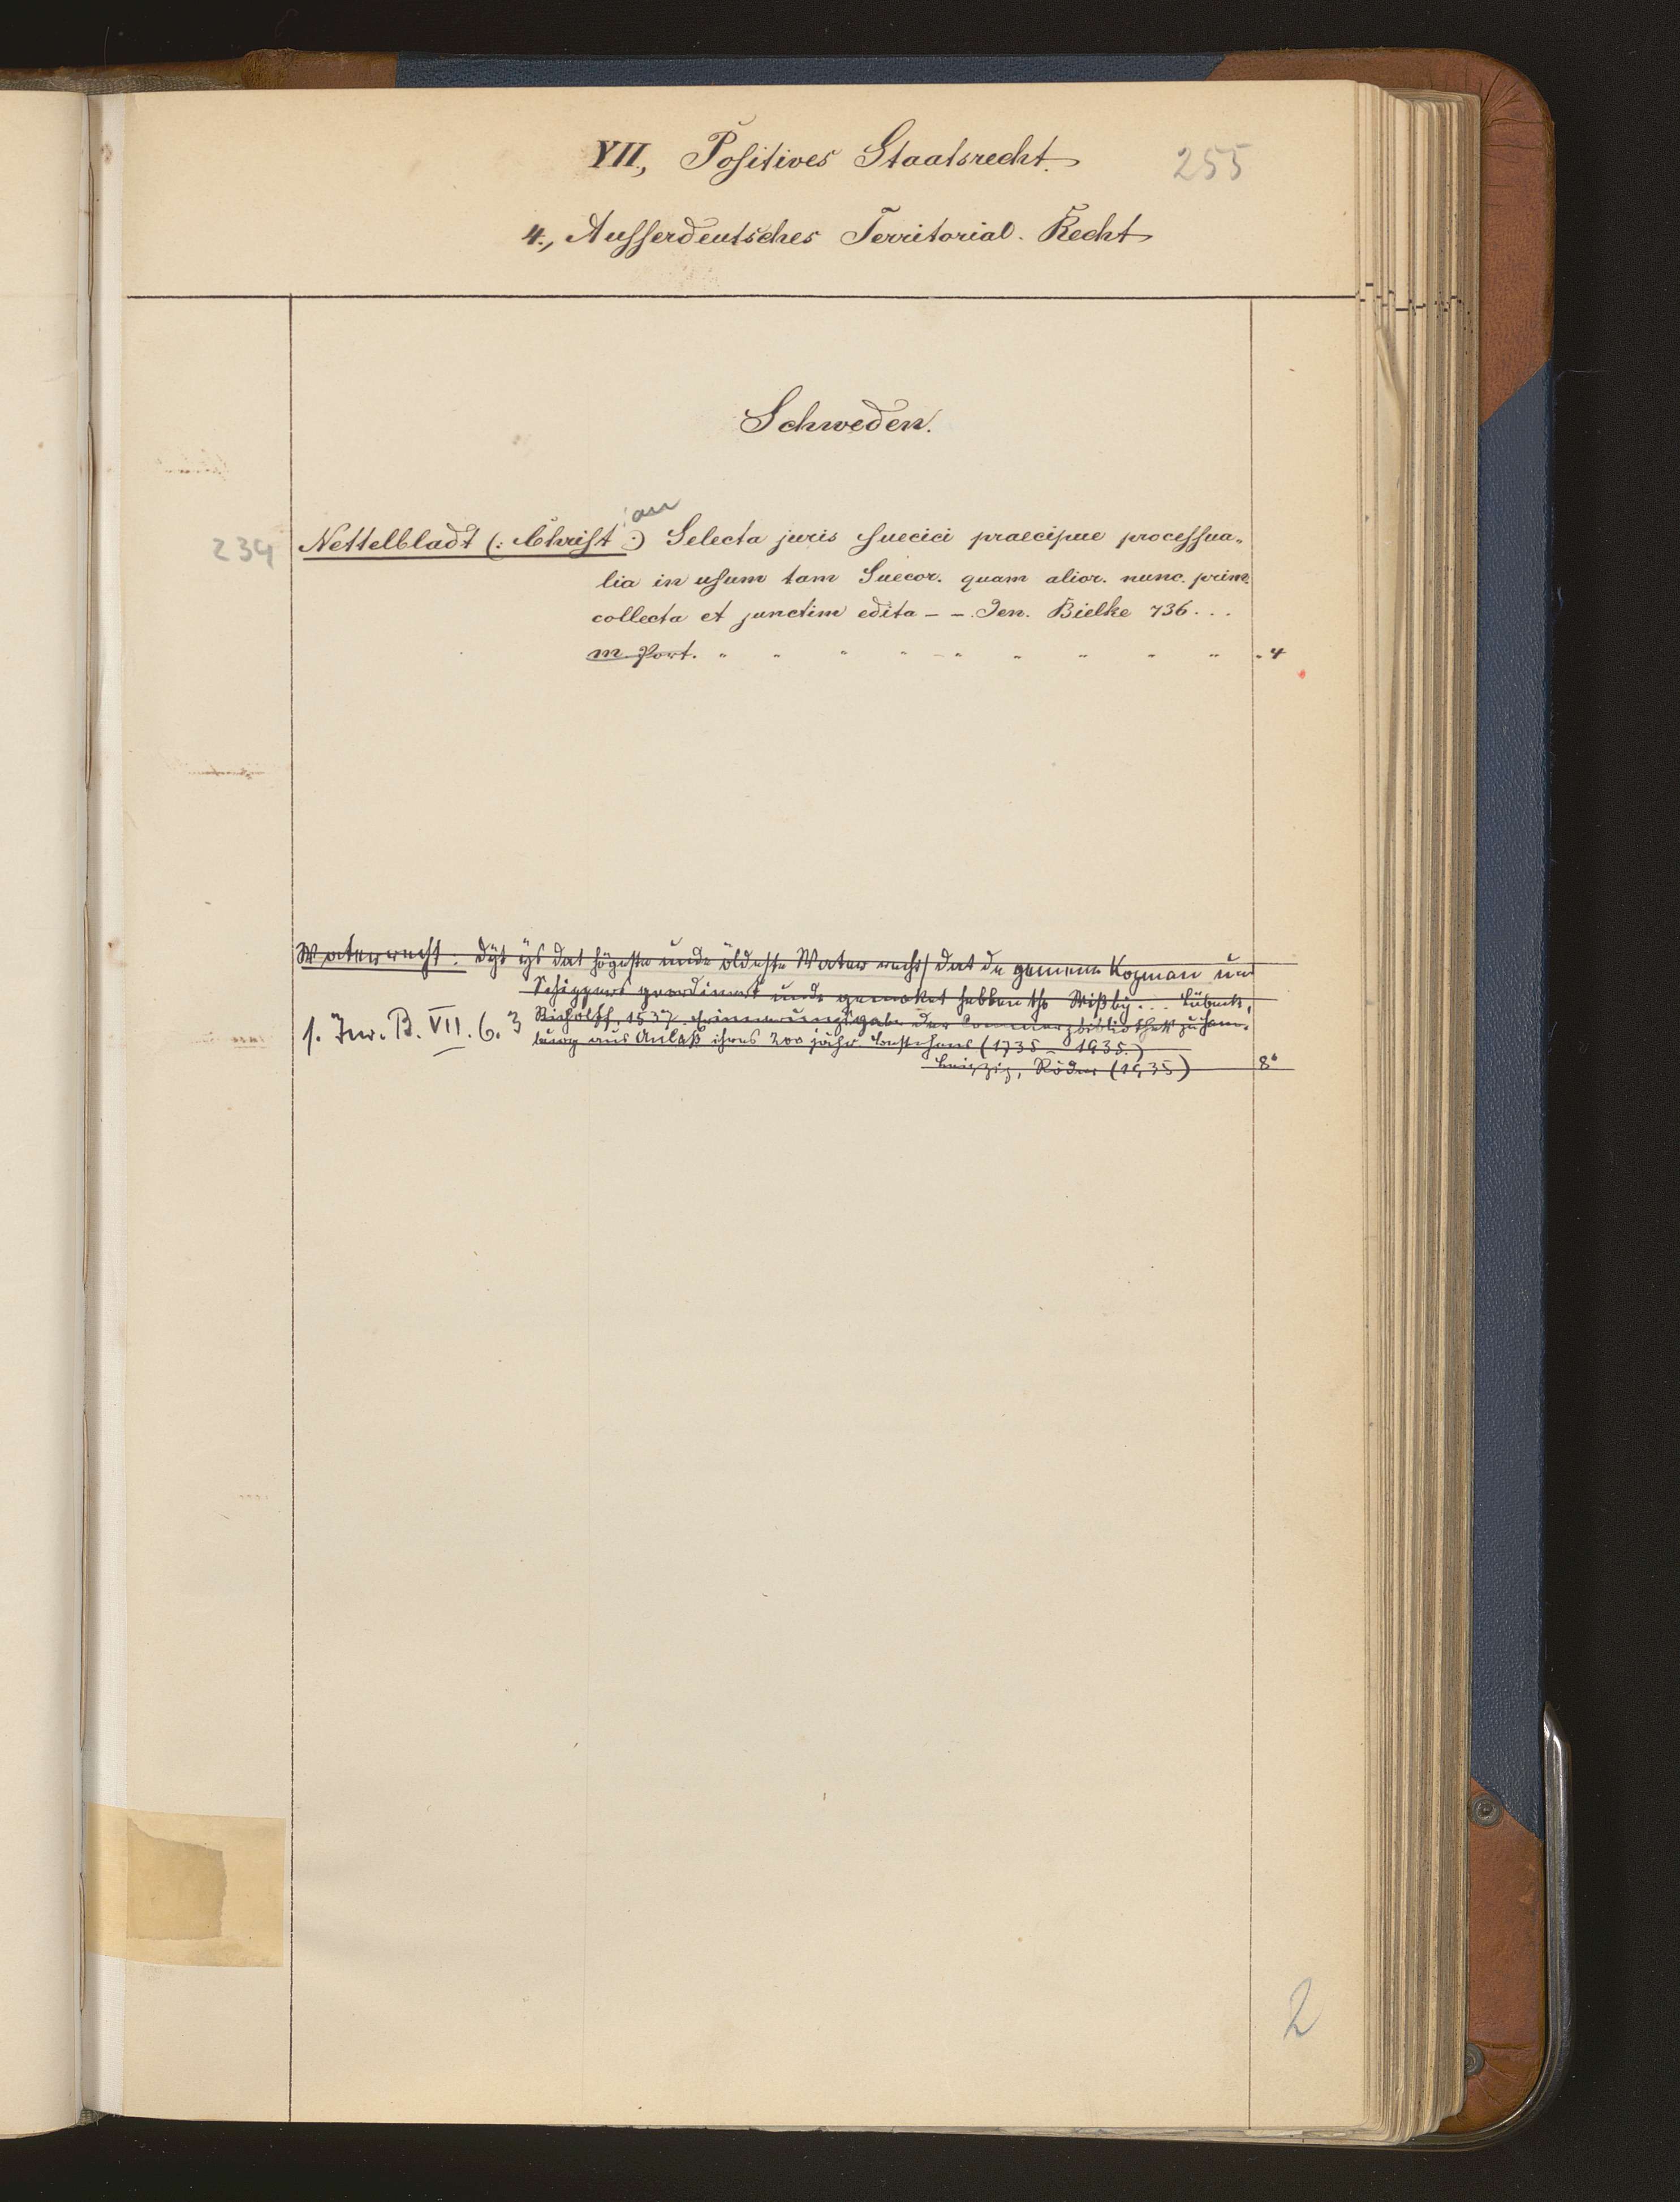 VII., Positives Staatsrecht. 255
4., Ausserdeutsches Territorial-Recht
Schweden.
ian
239 Nettelbladt (: Christ :) Selecta juris suecici praecipue processua-
lia in usum tam Suecor. quam alior. nunc. prim.
collecta et junctim edita - - Jen. Bielke 736 . . .
m. Port. " " " " " " " " " . 4
Waterrecht: Dÿt ÿs dat högeste unde öldeste Water recht / dat de gemene Kopman und
Schippers geordinert unde gemaket hebben tho Wißby . . . Lübeck,
Richolff, 1537. Erinnerungsgabe der Commerzbibliothek zu Ham-
s. Inv. B. VII. 6. 3 burg aus Anlaß ihres 200 jähr. Bestehens (1735 - 1935.)
Leipzig, Röder (1935) 8°
2